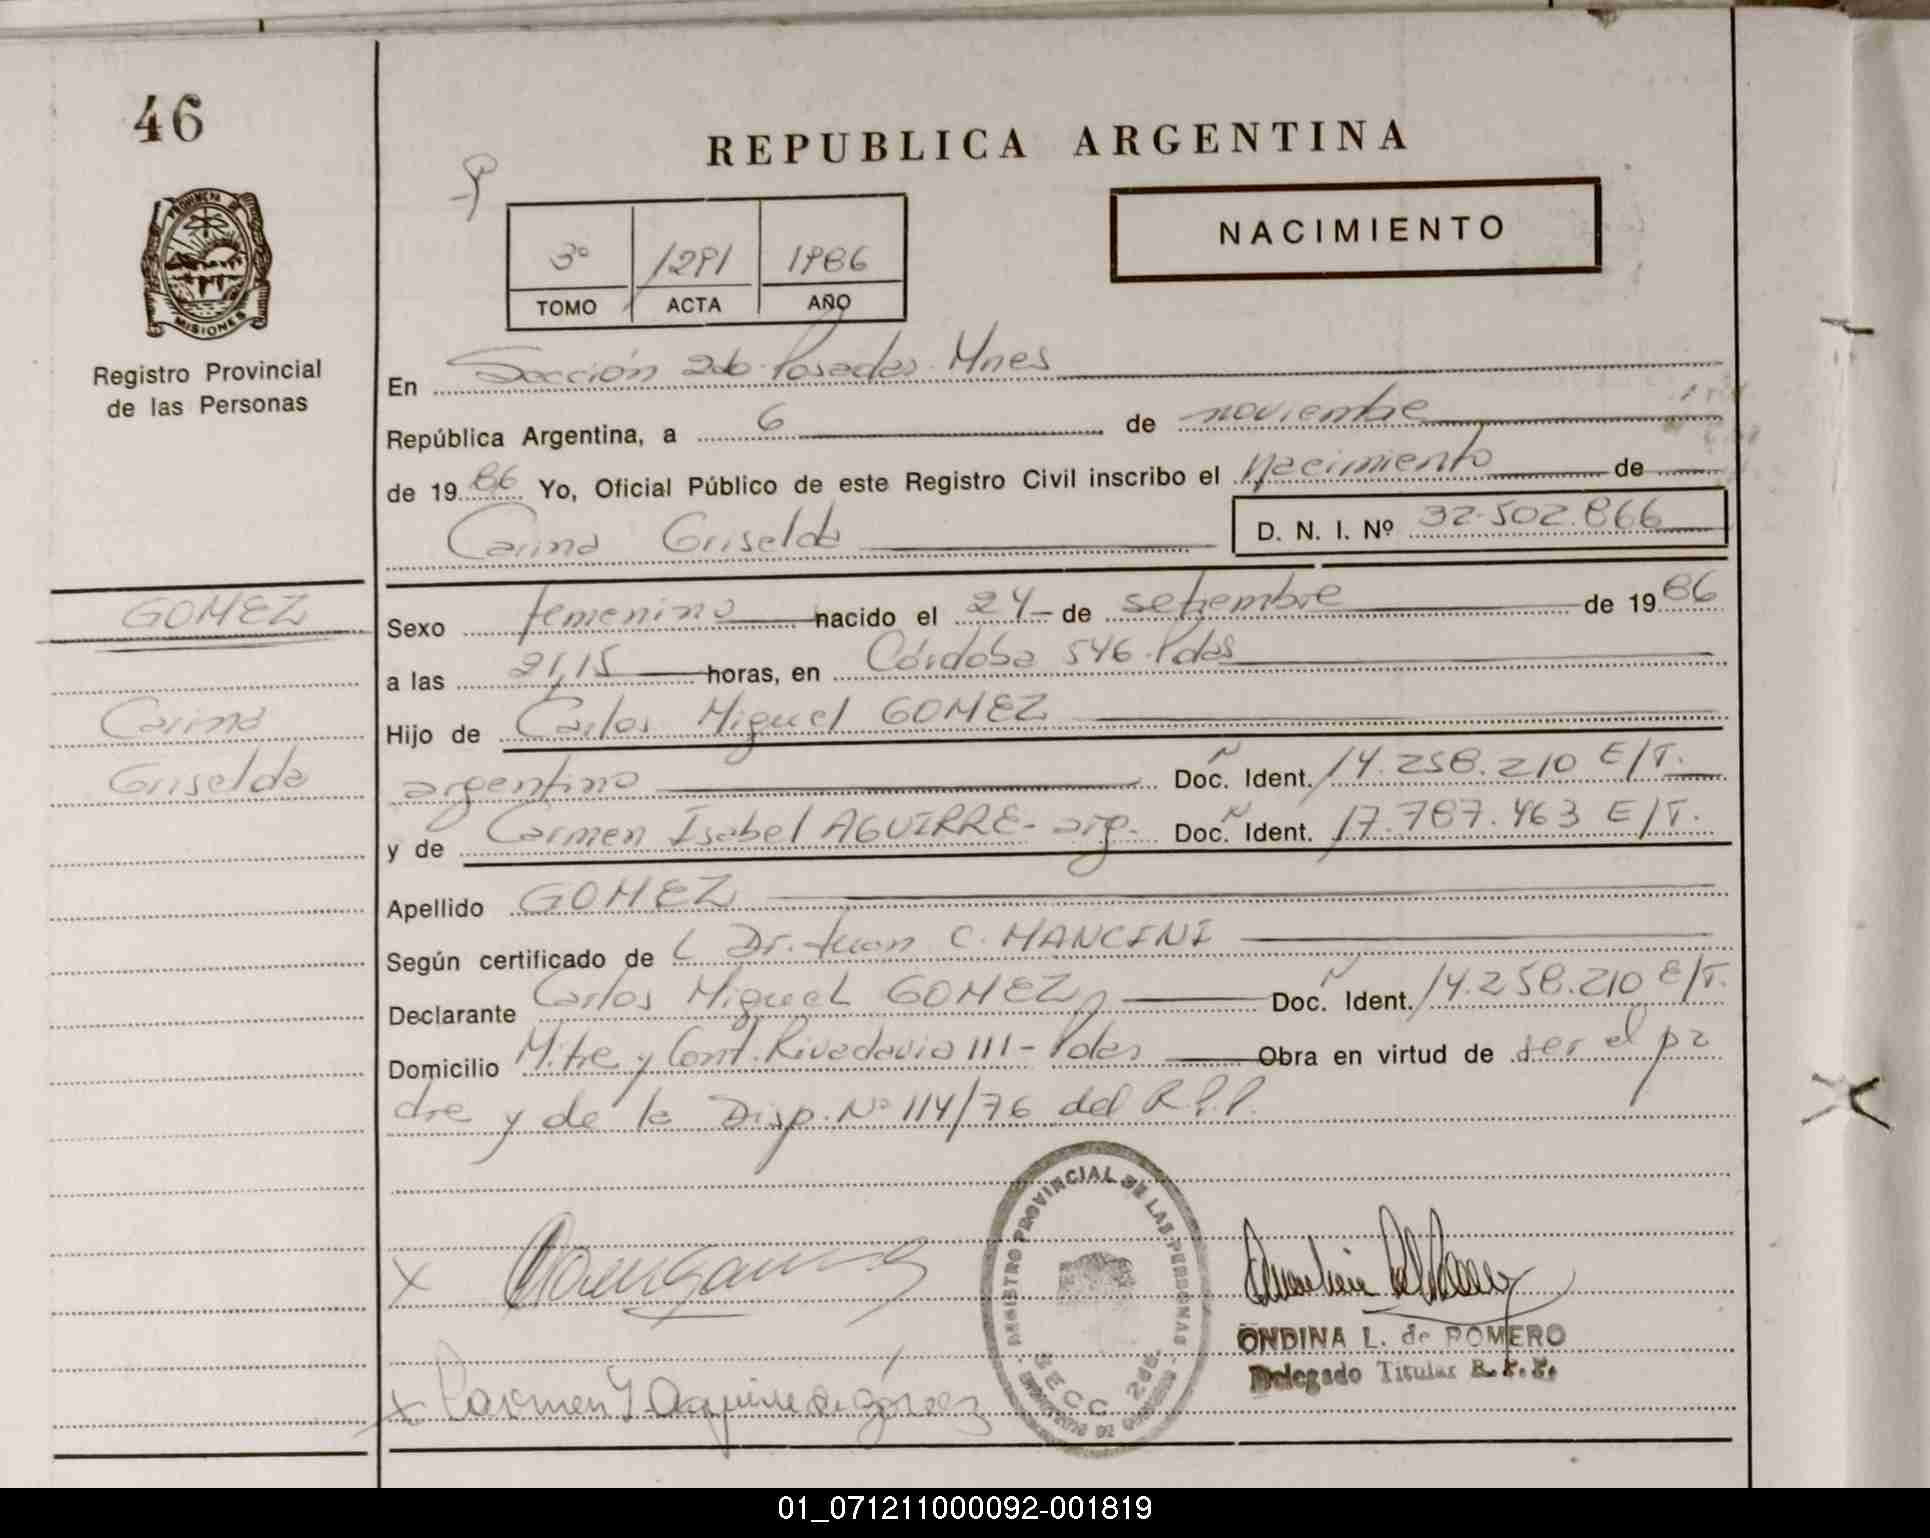 46
REPUBLICA ARGENTINA
PROVINCIA DE
MISIONES
Registro Provincial
de las Personas
NACIMIENTO
3º 1291 1986
TOMO ACTA AÑO
En Sección 2da Posadas Mnes
República Argentina, a 6 de noviembre
de 1986 Yo, Oficial Público de este Registro Civil inscribo el Nacimiento de
Carina Griselda D. N. I. Nº 32.502.866
GOMEZ
Carina
Griselda
Sexo femenino nacido el 24 de setiembre de 1986
a las 21,15 horas, en Córdoba 546 Pdas
Hijo de Carlos Miguel GOMEZ
argentino Doc. Ident. 14.258.210 E/T.
y de Carmen Isabel AGUIRRE - arg. Doc. Ident. 17.787.463 E/T.
Apellido GOMEZ
Según certificado de Dr. Juan C. MANCINI
Declarante Carlos Miguel GOMEZ Doc. Ident. 14.258.210 E/T.
Domicilio Mitre y Cont. Rivadavia 111 - Pdas Obra en virtud de ser el pa
dre y de la Disp. Nº 114/76 del R.P.P.
REGISTRO PROVINCIAL DE LAS PERSONAS
SECC 2da.
X
ONDINA L. de ROMERO
Delegado Titular R.P.P.
x Carmen I Aguirre de Gómez
01_071211000092-001819